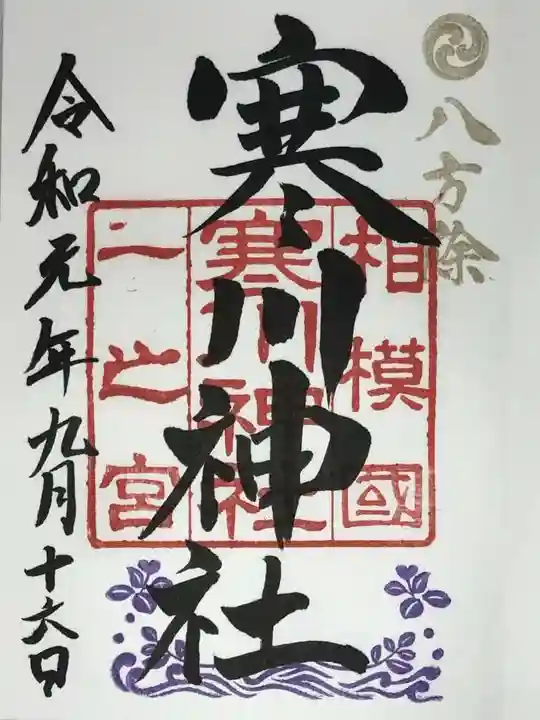 八方除
相模國
寒川神社
一之宮
寒川神社
令和元年九月十六日